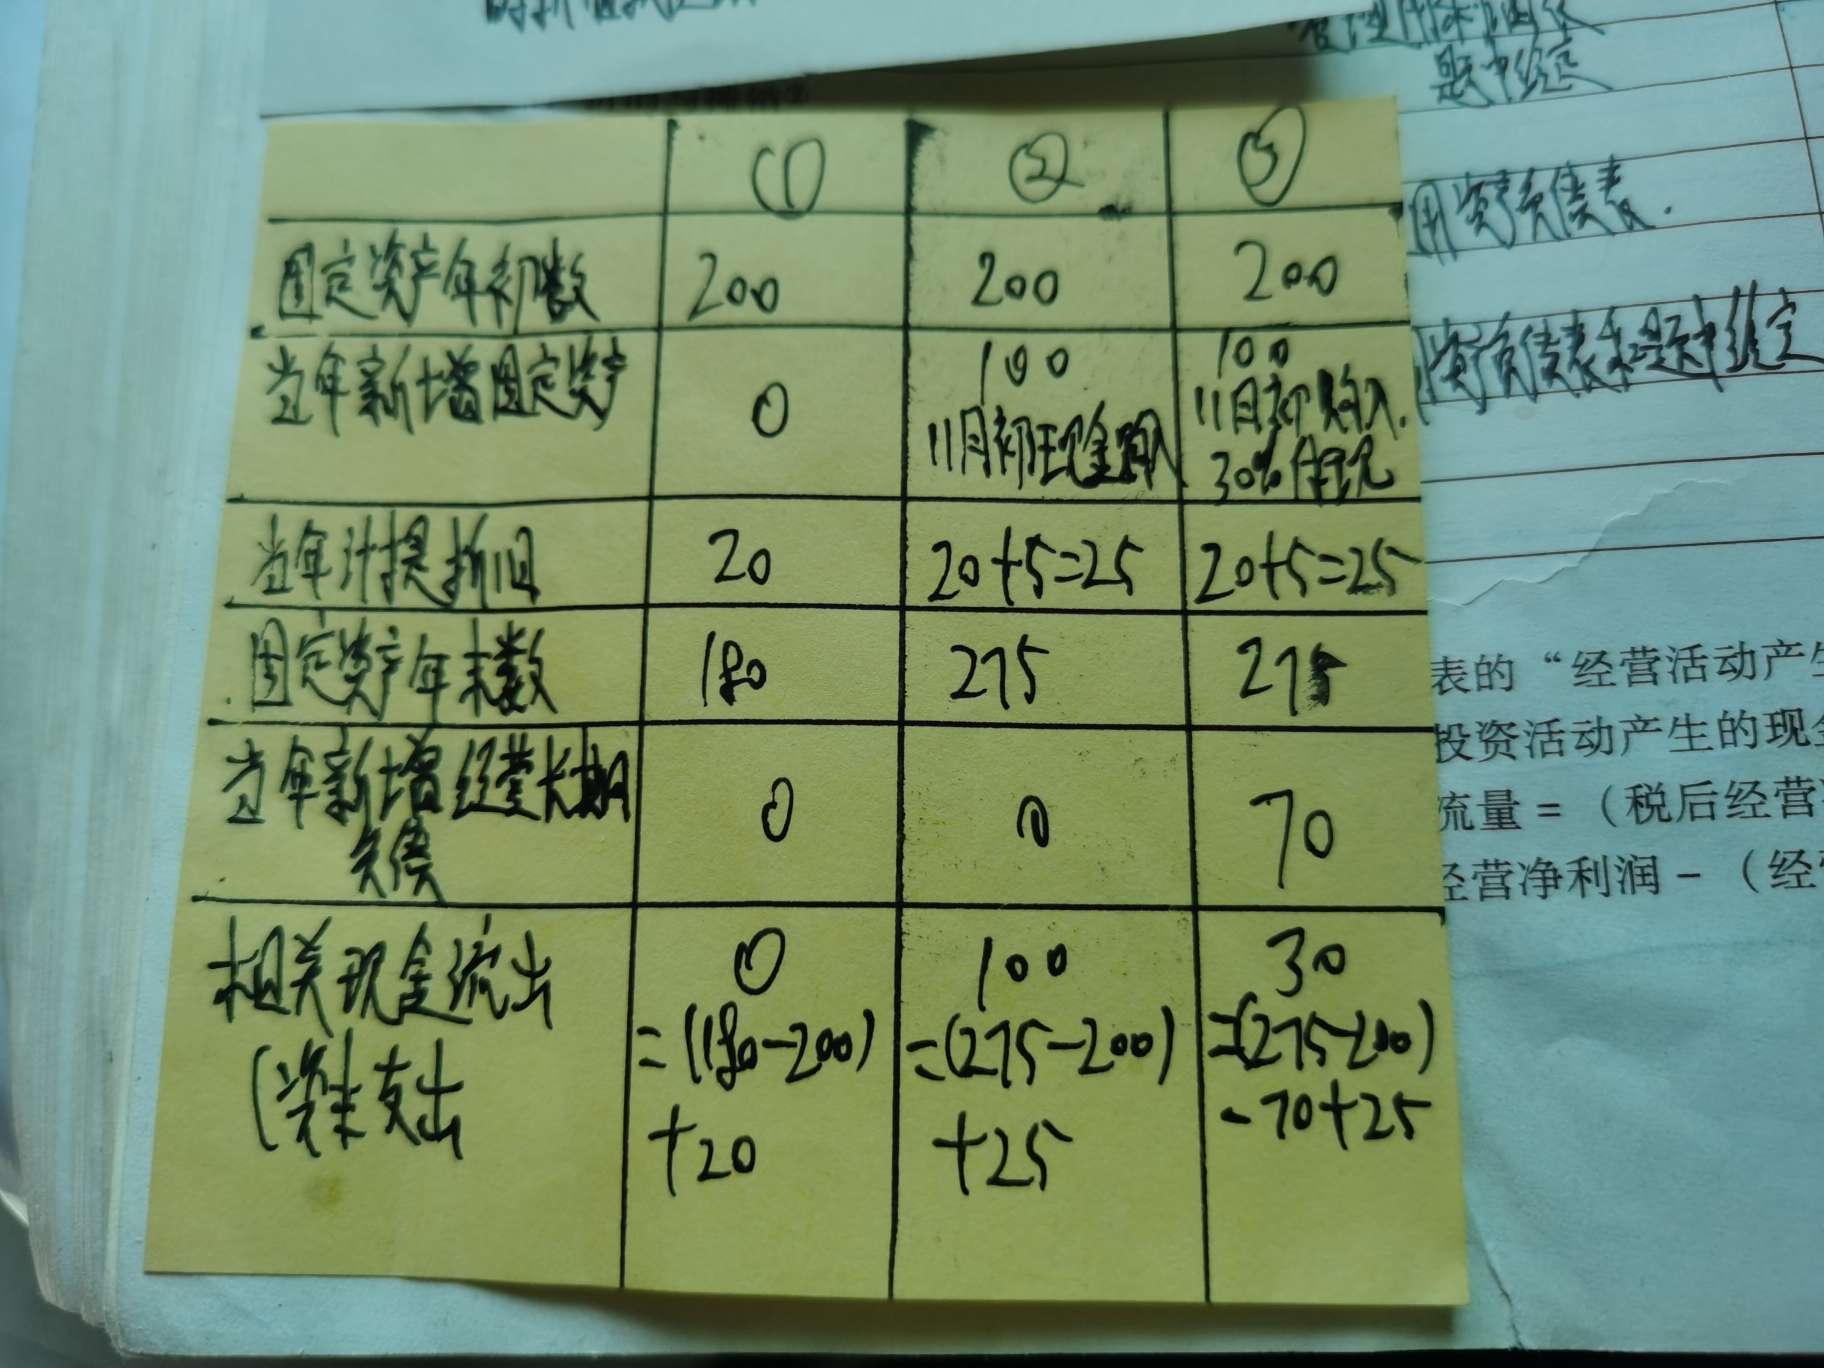 题中给定
① ② ③
用资产负债表.
固定资产年初数 200 200 200
资产负债表和题中给定
当年新增固定资产 0 100 100
11月初现金购入 11月初购入.
30%付现
当年计提折旧 20 20+5=25 20+5=25
固定资产年末数 180 275 275
表的“经营活动产生
投资活动产生的现金
当年新增经营长期 0 0 70
负债
流量=(税后经营
经营净利润-(经
相关现金流出 0 100 30
=(180-200) =(275-200) =(275-200)
(资本支出 +20 +25 -70+25